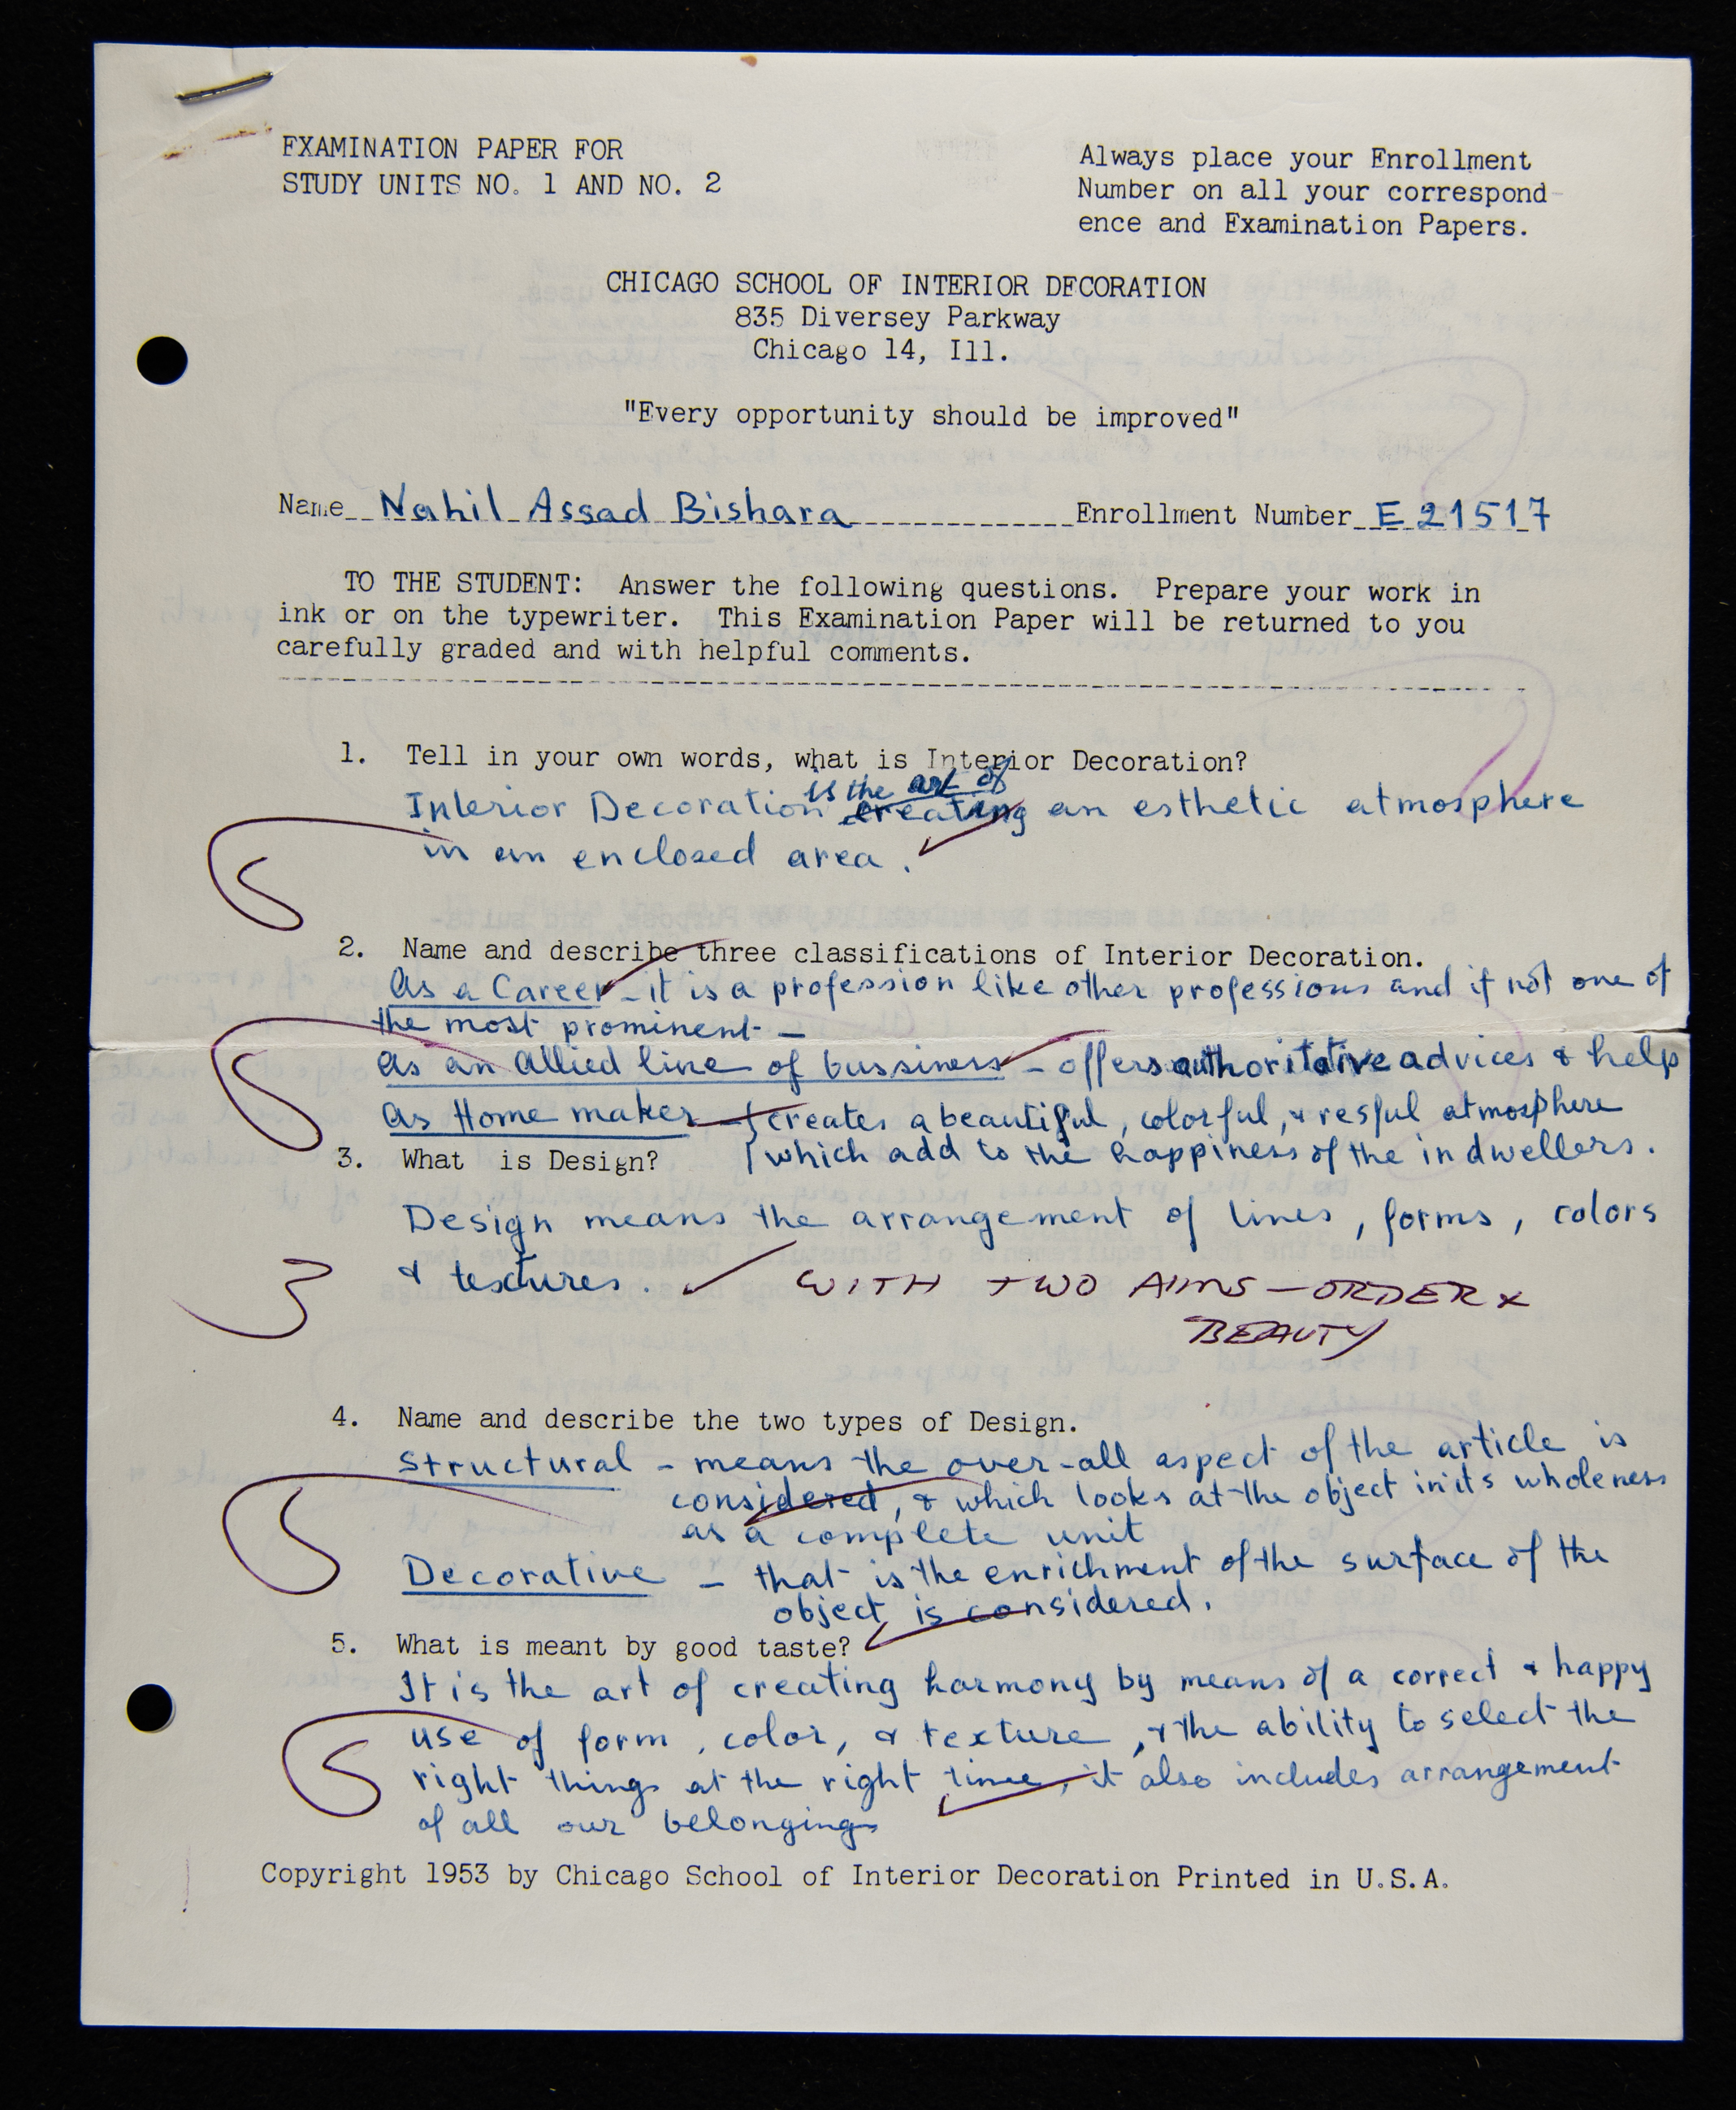 EXAMINATION PAPER FOR
STUDY UNITS NO. 1 AND NO. 2
Always place your Enrollment
Number on all your correspond-
ence and Examination Papers.
CHICAGO SCHOOL OF INTERIOR DECORATION
835 Diversey Parkway
Chicago 14, Ill.
"Every opportunity should be improved"
Name Nahil Assad Bishara Enrollment Number E 21517
TO THE STUDENT: Answer the following questions. Prepare your work in
ink or on the typewriter. This Examination Paper will be returned to you
carefully graded and with helpful comments.
1. Tell in your own words, what is Interior Decoration?
is the art of
Interior Decoration creating an esthetic atmosphere
in an enclosed area.
5
2. Name and describe three classifications of Interior Decoration.
As a Career - it is a profession like other professions and if not one of
the most prominent -
As an Allied line of bussiness - offers authoritative advices & help
5
As Home maker - creates a beautiful, colorful, & resful atmosphere
which add to the happiness of the indwellers.
3. What is Design?
Design means the arrangement of lines, forms, colors
& textures.
3
WITH TWO AIMS - ORDER &
BEAUTY
4. Name and describe the two types of Design.
Structural - means the over-all aspect of the article is
considered, & which looks at the object in its wholeness
as a complete unit
5
Decorative - that is the enrichment of the surface of the
object is considered.
5. What is meant by good taste?
It is the art of creating harmony by means of a correct & happy
use of form, color, & texture, & the ability to select the
5
right things at the right time, it also includes arrangement
of all our belongings
Copyright 1953 by Chicago School of Interior Decoration Printed in U.S.A.